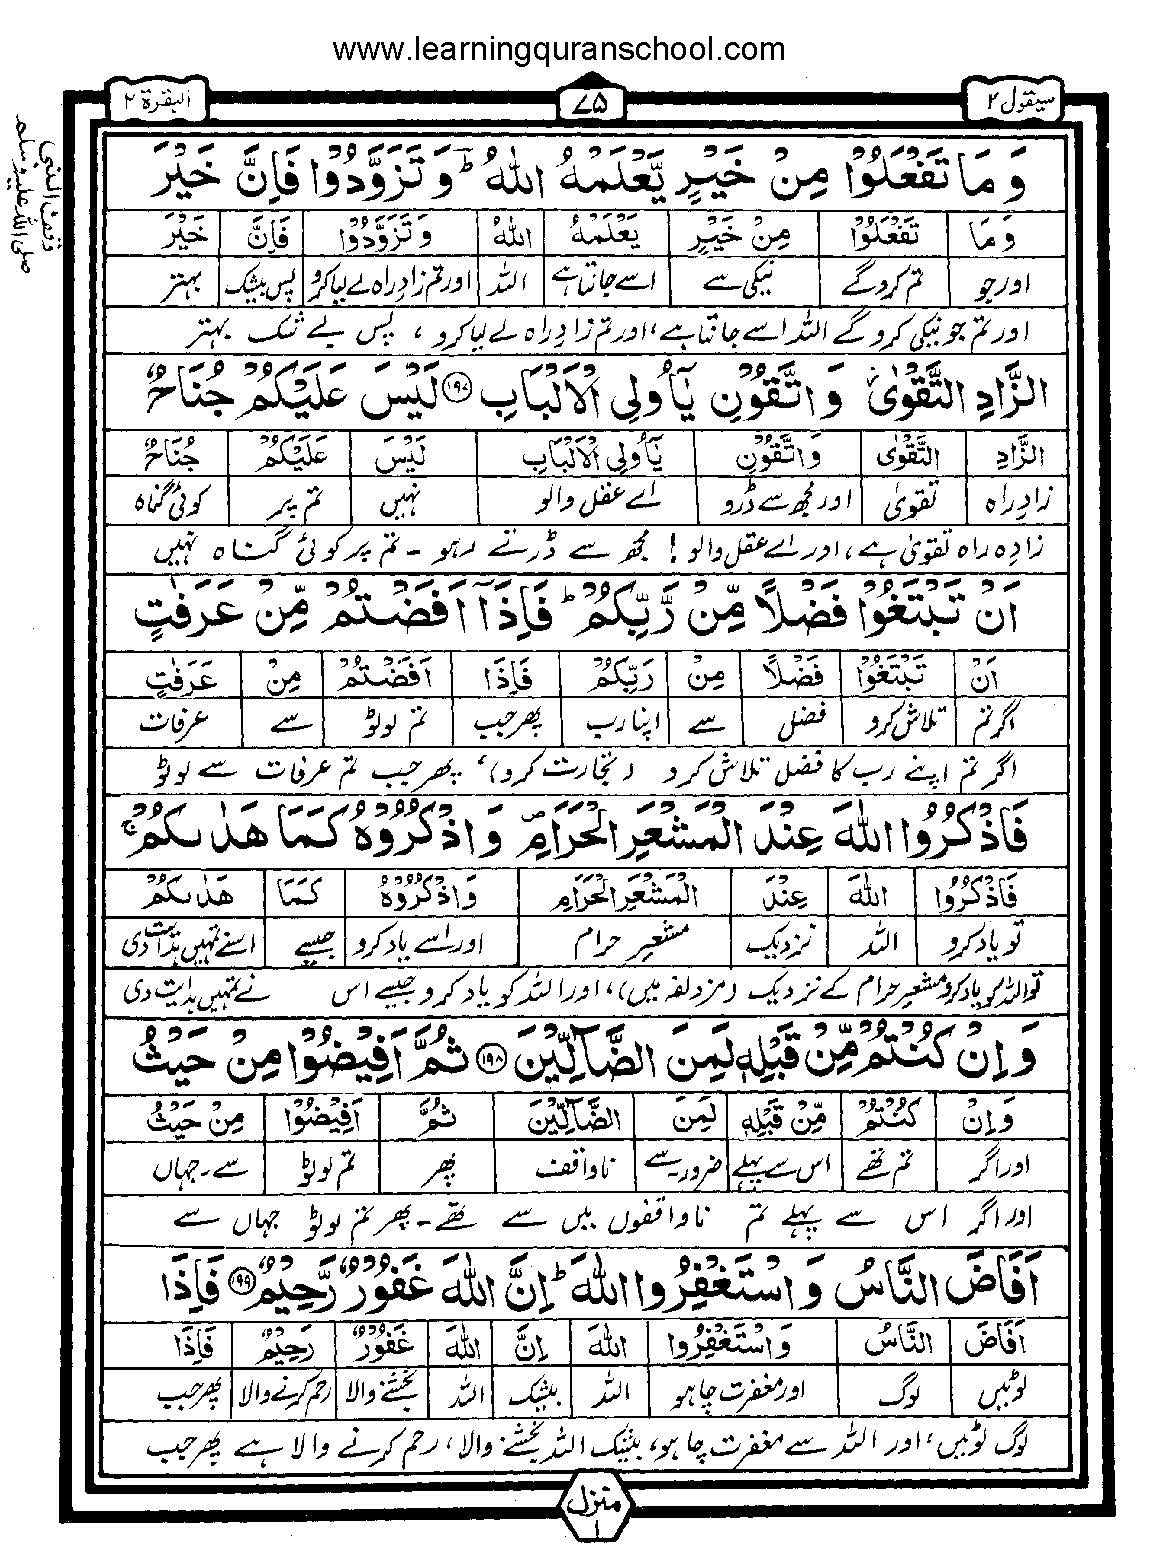 www.learningquranschool.com
سيقول ٢
٧٥
البقرة ٢
وقف النبی صلی اللہ علیہ وسلم
وَمَا تَفْعَلُوْا مِنْ خَيْرٍ يَّعْلَمْهُ اللهُ ؕ وَتَزَوَّدُوْا فَاِنَّ خَيْرَ
وَمَا تَفْعَلُوْا مِنْ خَيْرٍ يَعْلَمْهُ اللهُ وَتَزَوَّدُوْا فَاِنَّ خَيْرَ
اور جو تم کروگے نیکی سے اسے جانتا ہے اللہ اور تم زادِ راہ لے لیا کرو پس بیشک بہتر
اور تم جو نیکی کروگے اللہ اسے جانتا ہے، اور تم زادِ راہ لے لیا کرو ، پس بے شک بہتر
الزَّادِ التَّقْوٰى ۫ وَاتَّقُوْنِ يٰٓاُولِي الْاَلْبَابِ ۝١٩٧ لَيْسَ عَلَيْكُمْ جُنَاحٌ
الزَّادِ التَّقْوٰى وَاتَّقُوْنِ يٰٓاُولِي الْاَلْبَابِ لَيْسَ عَلَيْكُمْ جُنَاحٌ
زادِ راہ تقویٰ اور مجھ سے ڈرو اے عقل والو نہیں تم پر کوئی گناہ
زادِ راہ تقویٰ ہے، اور اے عقل والو! مجھ سے ڈرتے رہو - تم پر کوئی گناہ نہیں
اَنْ تَبْتَغُوْا فَضْلًا مِّنْ رَّبِّكُمْ ؕ فَاِذَآ اَفَضْتُمْ مِّنْ عَرَفٰتٍ
اَنْ تَبْتَغُوْا فَضْلًا مِنْ رَبِّكُمْ فَاِذَا اَفَضْتُمْ مِنْ عَرَفٰتٍ
اگر تم تلاش کرو فضل سے اپنا رب پھر جب تم لوٹو سے عرفات
اگر تم اپنے رب کا فضل تلاش کرو (تجارت کرو)، پھر جب تم عرفات سے لوٹو
فَاذْكُرُوا اللهَ عِنْدَ الْمَشْعَرِ الْحَرَامِ ۪ وَاذْكُرُوْهُ كَمَا هَدٰىكُمْ ۚ
فَاذْكُرُوا اللهَ عِنْدَ الْمَشْعَرِ الْحَرَامِ وَاذْكُرُوْهُ كَمَا هَدٰىكُمْ
تو یاد کرو اللہ نزدیک مشعرِ حرام اور اسے یاد کرو جیسے اسنے تمہیں ہدایت دی
تو اللہ کو یاد کرو مشعرِ حرام کے نزدیک (مزدلفہ میں)، اور اللہ کو یاد کرو جیسے اس نے تمہیں ہدایت دی
وَاِنْ كُنْتُمْ مِّنْ قَبْلِهٖ لَمِنَ الضَّآلِّيْنَ ۝١٩٨ ثُمَّ اَفِيْضُوْا مِنْ حَيْثُ
وَاِنْ كُنْتُمْ مِّنْ قَبْلِهٖ لَمِنَ الضَّآلِّيْنَ ثُمَّ اَفِيْضُوْا مِنْ حَيْثُ
اور اگر تم تھے اس سے پہلے ضرور۔سے ناواقف پھر تم لوٹو سے۔جہاں
اور اگر اس سے پہلے تم ناواقفوں میں سے تھے - پھر تم لوٹو جہاں سے
اَفَاضَ النَّاسُ وَاسْتَغْفِرُوا اللهَ ؕ اِنَّ اللهَ غَفُوْرٌ رَّحِيْمٌ ۝١٩٩ فَاِذَا
اَفَاضَ النَّاسُ وَاسْتَغْفِرُوا اللهَ اِنَّ اللهَ غَفُوْرٌ رَحِيْمٌ فَاِذَا
لوٹیں لوگ اور مغفرت چاہو اللہ بیشک اللہ بخشنے والا رحم کرنے والا پھر جب
لوگ لوٹیں، اور اللہ سے مغفرت چاہو، بیشک اللہ بخشنے والا، رحم کرنے والا ہے پھر جب
منزل ١